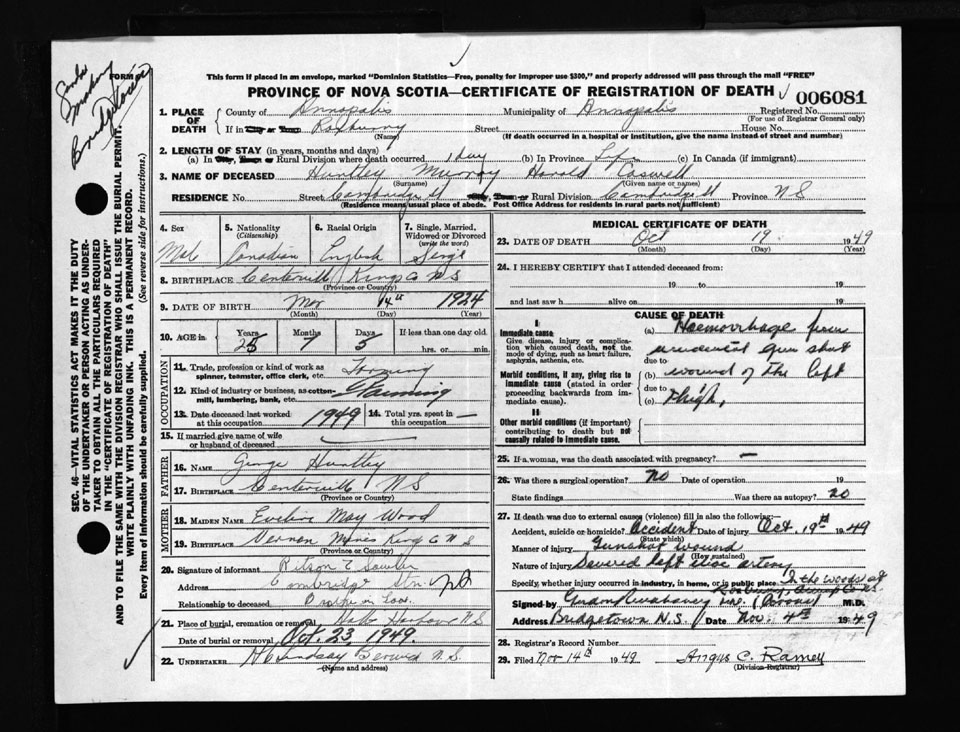 Bridgetown
FORM
This form if placed in an envelope, marked "Dominion Statistics—Free, penalty for improper use $300," and properly addressed will pass through the mail "FREE"
PROVINCE OF NOVA SCOTIA—CERTIFICATE OF REGISTRATION OF DEATH
006081
1. PLACE OF DEATH County of Annapolis Municipality of Annapolis Registered No.
(For use of Registrar General only)
If in City or Town Roxbury Street House No.
(Name) (If death occurred in a hospital or institution, give the name instead of street and number)
2. LENGTH OF STAY (in years, months and days)
(a) In City, Town or Rural Division where death occurred 1 day (b) In Province Life (c) In Canada (if immigrant)
3. NAME OF DECEASED Huntley Murray Harold Caswell
(Surname) (Given name or names)
RESIDENCE No. Street Cambridge St City, Town or Rural Division Cambridge St Province N S
(Residence means usual place of abode. Post Office Address for residents in rural parts not sufficient)
4. Sex
Mal
5. Nationality
(Citizenship)
Canadian
6. Racial Origin
English
7. Single, Married, Widowed or Divorced
(write the word)
Singl
8. BIRTHPLACE Centervill Kings Co N S
(Province or Country)
9. DATE OF BIRTH Mar 14th 1924
(Month) (Day) (Year)
10. AGE in Years Months Days If less than one day old
25 7 5 hrs. or min.
OCCUPATION
11. Trade, profession or kind of work as spinner, teamster, office clerk, etc.
12. Kind of industry or business, as cotton-mill, lumbering, bank, etc. Farming
13. Date deceased last worked at this occupation 1949 14. Total yrs. spent in this occupation —
15. If married give name of wife or husband of deceased
FATHER
16. NAME George Huntley
17. BIRTHPLACE Centervill N S
(Province or Country)
MOTHER
18. MAIDEN NAME Eveline May Wood
19. BIRTHPLACE Vernon Mines King Co N S
(Province or Country)
20. Signature of informant
Address Cambridge Stn NS
Relationship to deceased Brother in Law.
21. Place of burial, cremation or removal Halls Harbour N S
Date of burial or removal Oct. 23, 1949.
22. UNDERTAKER Lindsay Berwick N.S.
(Name and address)
MEDICAL CERTIFICATE OF DEATH
23. DATE OF DEATH Oct 19 1949
(Month) (Day) (Year)
24. I HEREBY CERTIFY that I attended deceased from:
19 to 19
and last saw h alive on 19
CAUSE OF DEATH
I
Immediate cause
Give disease, injury or complication which caused death, not the mode of dying, such as heart failure, asphyxia, asthenia, etc.
(a) Haemorrhage from
accidental gun shot
due to
Morbid conditions, if any, giving rise to immediate cause (stated in order proceeding backwards from immediate cause).
(b) wound of the left
due to
(c) thigh.
II
Other morbid conditions (if important) contributing to death but not causally related to immediate cause.
25. If a woman, was the death associated with pregnancy? —
26. Was there a surgical operation? No Date of operation 19
State findings Was there an autopsy? no
27. If death was due to external causes (violence) fill in also the following:—
Accident, suicide or homicide? Accident Date of injury Oct. 19th 1949
(State which)
Manner of injury Gunshot wound
(How sustained)
Nature of injury Severed left iliac artery
Specify whether injury occurred in industry, in home, or in public place In the woods at
Roxbury, Annap Co. N.S.
Signed by M.D.
Address Bridgetown N.S. Date Nov. 4th 1949
28. Registrar's Record Number
29. Filed Nov 14th 1949 Angus C. Ramey
(Division Registrar)
SEC. 46—VITAL STATISTICS ACT MAKES IT THE DUTY
OF THE UNDERTAKER OR PERSON ACTING AS UNDER-
TAKER TO OBTAIN ALL THE PARTICULARS REQUIRED
IN THE "CERTIFICATE OF REGISTRATION OF DEATH"
AND TO FILE THE SAME WITH THE DIVISION REGISTRAR WHO SHALL ISSUE THE BURIAL PERMIT.
WRITE PLAINLY WITH UNFADING INK. THIS IS A PERMANENT RECORD.
Every item of information should be carefully supplied. (See reverse side for instructions.)